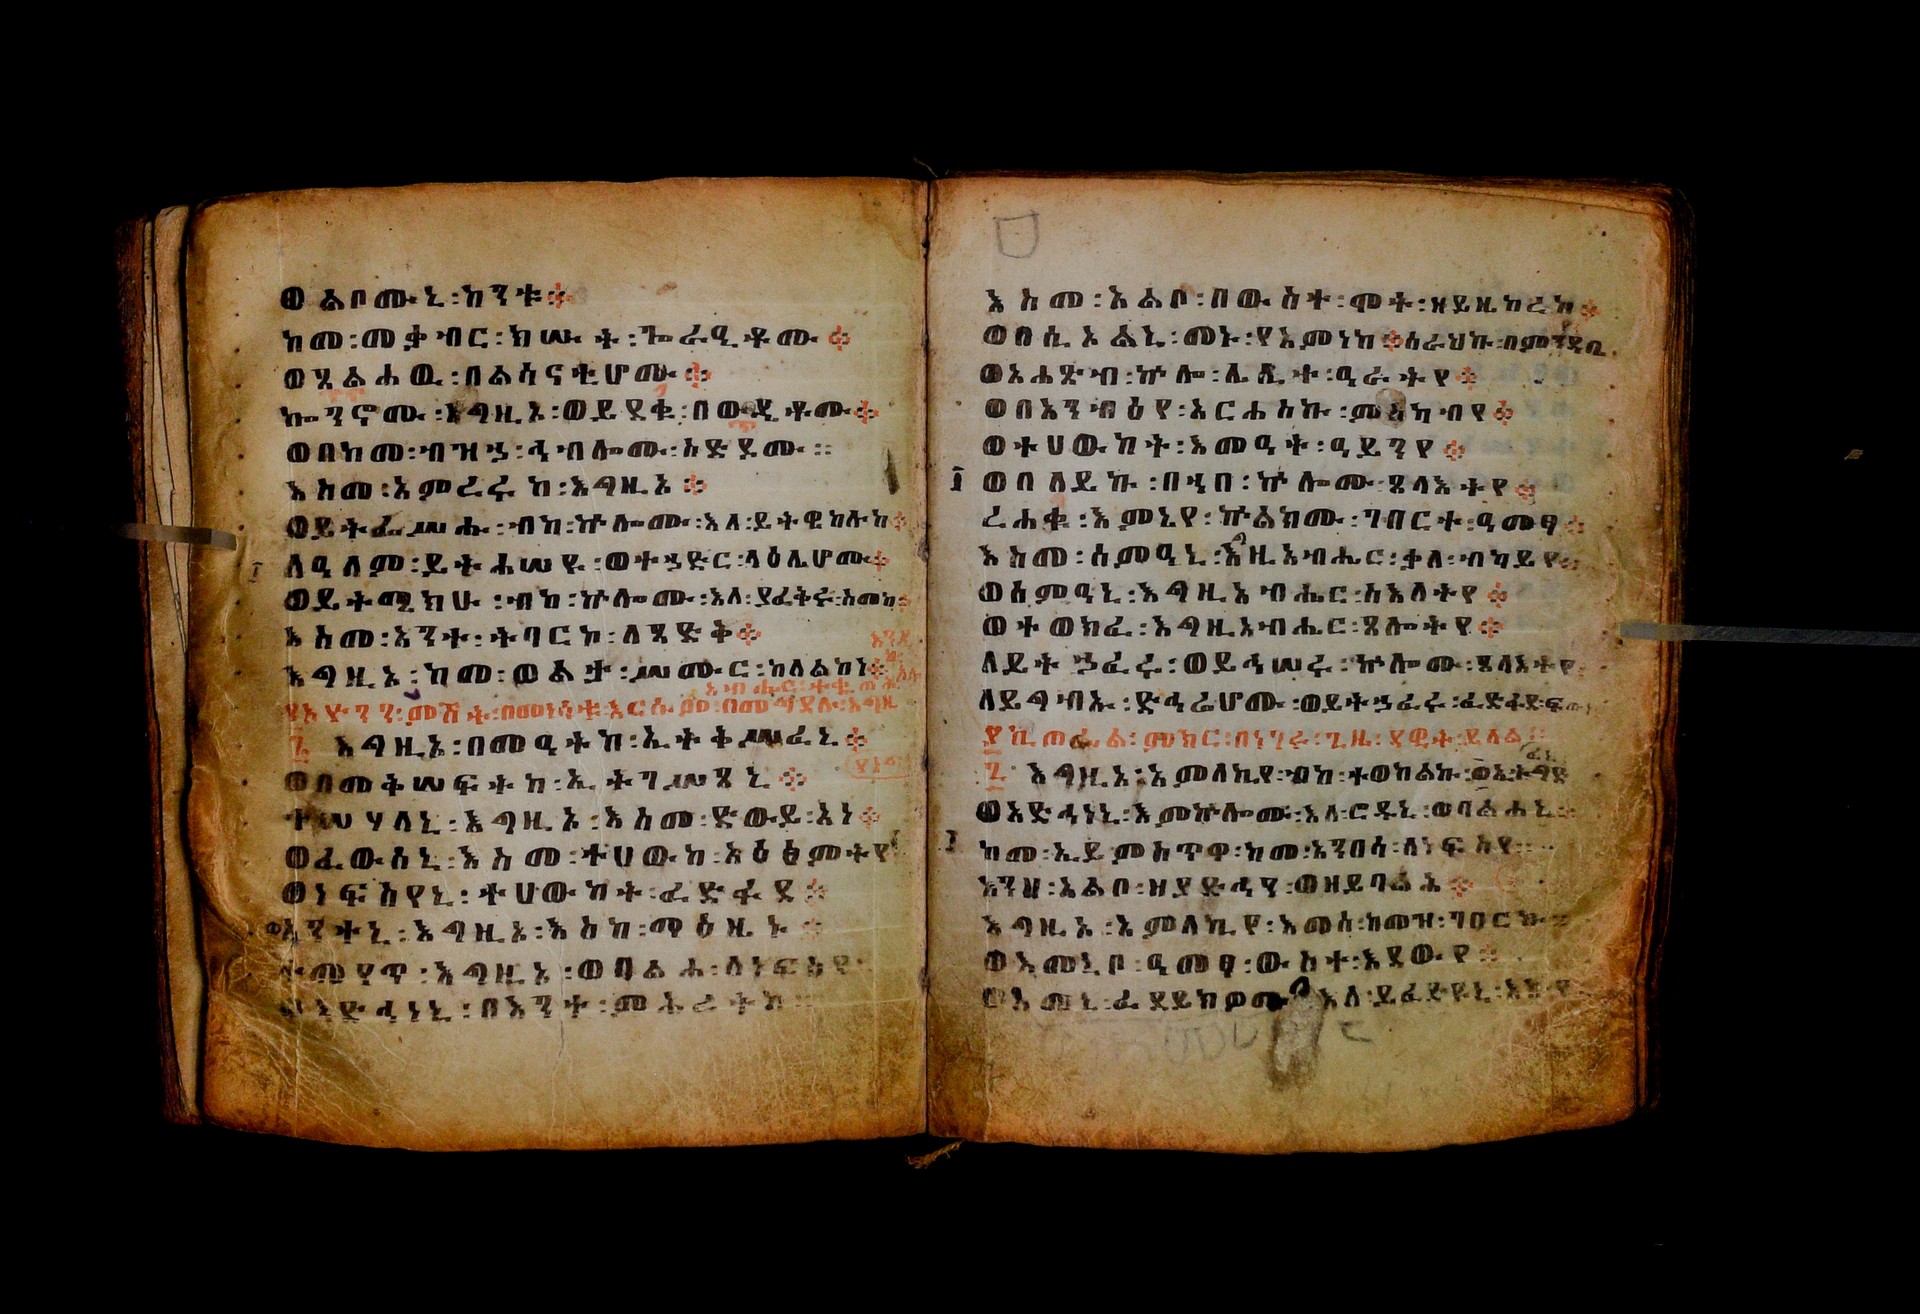 ወልቦሙኒ፡ከንቱ፨
ከመ፡መቃብር፡ክሡት፡ጐራዒቶሙ፨
ወጼልሐዉ፡በልሳናቲሆሙ፨
ኰንኖሙ፡እግዚኦ፡ወይደቁ፡በውዲቶሙ፨
ወበከመ፡ብዝኃ፡ሕብሎሙ፡ስድዶሙ፡፡
እስመ፡አምረሩከ፡እግዚኦ፨
ወይትፌሥሑ፡ብከ፡ኵሎሙ፡እለ፡ይትዌከሉከ፨
ለዓለም፡ይትሐሠዩ፡ወተኃድር፡ላዕሌሆሙ፨
ወይትሜክሁ፡ብከ፡ኵሎሙ፡እለ፡ያፈቅሩ፡ስመከ፨
እስመ፡አንተ፡ትባርኮ፡ለጻድቅ፨
እግዚኦ፡ከመ፡ወልታ፡ሥሙር፡ከለልከነ፨
እግዚኦ፡በመዓትከ፡ኢትቅሥፈኒ፨
ወበመቅሠፍትከ፡ኢትገሥጸኒ፨
ተሠሃለኒ፡እግዚኦ፡እስመ፡ድውይ፡አነ፨
ወፈውሰኒ፡እስመ፡ተሀውከ፡አዕፅምትየ
ወነፍስየኒ፡ተሀውከት፡ፈድፋደ፨
ወአንተኒ፡እግዚኦ፡እስከ፡ማዕዜኑ፨
ተመየጥ፡እግዚኦ፡ወባልሐ፡ለነፍስየ፡
ወአድኅነኒ፡በእንተ፡ምሕረትከ፡፡
እስመ፡አልቦ፡በውስተ፡ሞት፡ዘይዜከረከ፨
ወበሲኦልኒ፡መኑ፡የአምነከ፨ሰራህኩ፡በምንዳቤ
ወአሐጽብ፡ኵሎ፡ሌሊተ፡ዓራትየ፨
ወበአንብዕየ፡አርሐስኩ፡ምስካብየ፨
ወተሀውከት፡እመዓት፡ዓይንየ፨
ወበለይኩ፡በኀበ፡ኵሎሙ፡ጸላእትየ፨
ረሐቁ፡እምኔየ፡ኵልክሙ፡ገበርተ፡ዓመፃ፨
እስመ፡ሰምዓኒ፡እግዚአብሔር፡ቃለ፡ብካይየ፨
ወሰምዓኒ፡እግዚአብሔር፡ስእለትየ፨
ወተወክፈ፡እግዚአብሔር፡ጸሎትየ፨
ለይትኃፈሩ፡ወይኅሠሩ፡ኵሎሙ፡ጸላእትየ፨
ለይግብኡ፡ድኅሬሆሙ፡ወይትኃፈሩ፡ፈድፋደ፡
እግዚኦ፡አምላኪየ፡ብከ፡ተወከልኩ፡
ወአድኅነኒ፡እምኵሎሙ፡እለ፡ሮዱኒ፡ወባልሐኒ፨
ከመ፡ኢይምስጥዋ፡ከመ፡አንበሳ፡ለነፍስየ፡፡
እንዘ፡አልቦ፡ዘያድኅን፡ወዘይባልሕ፨
እግዚኦ፡አምላኪየ፡እመሰ፡ከመዝ፡ገበርኩ፨
ወእመኒቦ፡ዓመፃ፡ውስተ፡እደውየ፨
ወእመኒ፡ፈደይክዎሙ፡ለእለ፡ይፈድዩኒ፡እኪየ